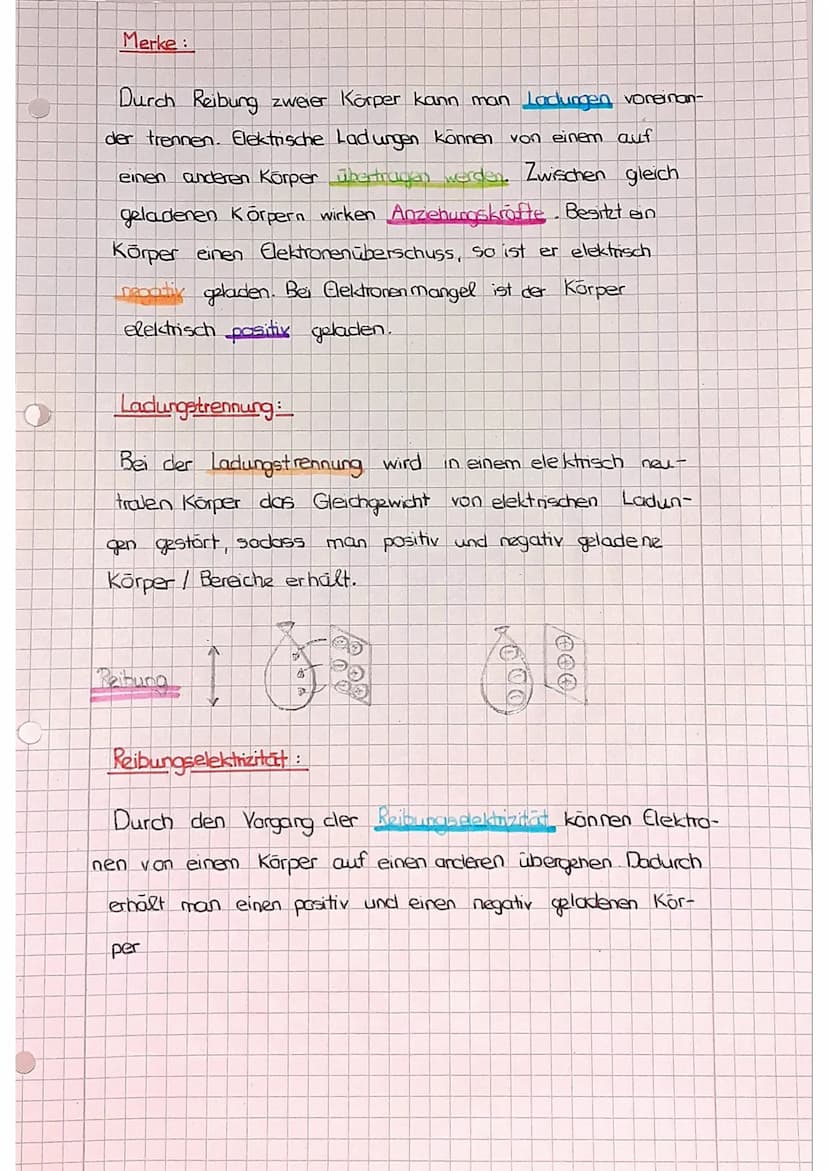 Merke:
Durch Reibung zweier Körper kann man Ladungen voneinan-
der trennen. Elektrische Ladungen können von einem auf
einen anderen Körper übertragen werden. Zwischen gleich
geladenen Körpern wirken Anziehungskräfte. Besitzt ein
Körper einen Elektronenüberschuss, so ist er elektrisch
negativ geladen. Bei Elektronenmangel ist der Körper
elektrisch positiv geladen.
Ladungstrennung:
Bei der Ladungstrennung wird in einem elektrisch neu-
tralen Körper das Gleichgewicht von elektrischen Ladun-
gen gestört, sodass man positiv und negativ geladene
Körper / Bereiche erhält.
Reibung
Reibungselektrizität:
Durch den Vorgang der Reibungselektrizität können Elektro-
nen von einem Körper auf einen anderen übergehen. Dadurch
erhält man einen positiv und einen negativ geladenen Kör-
per